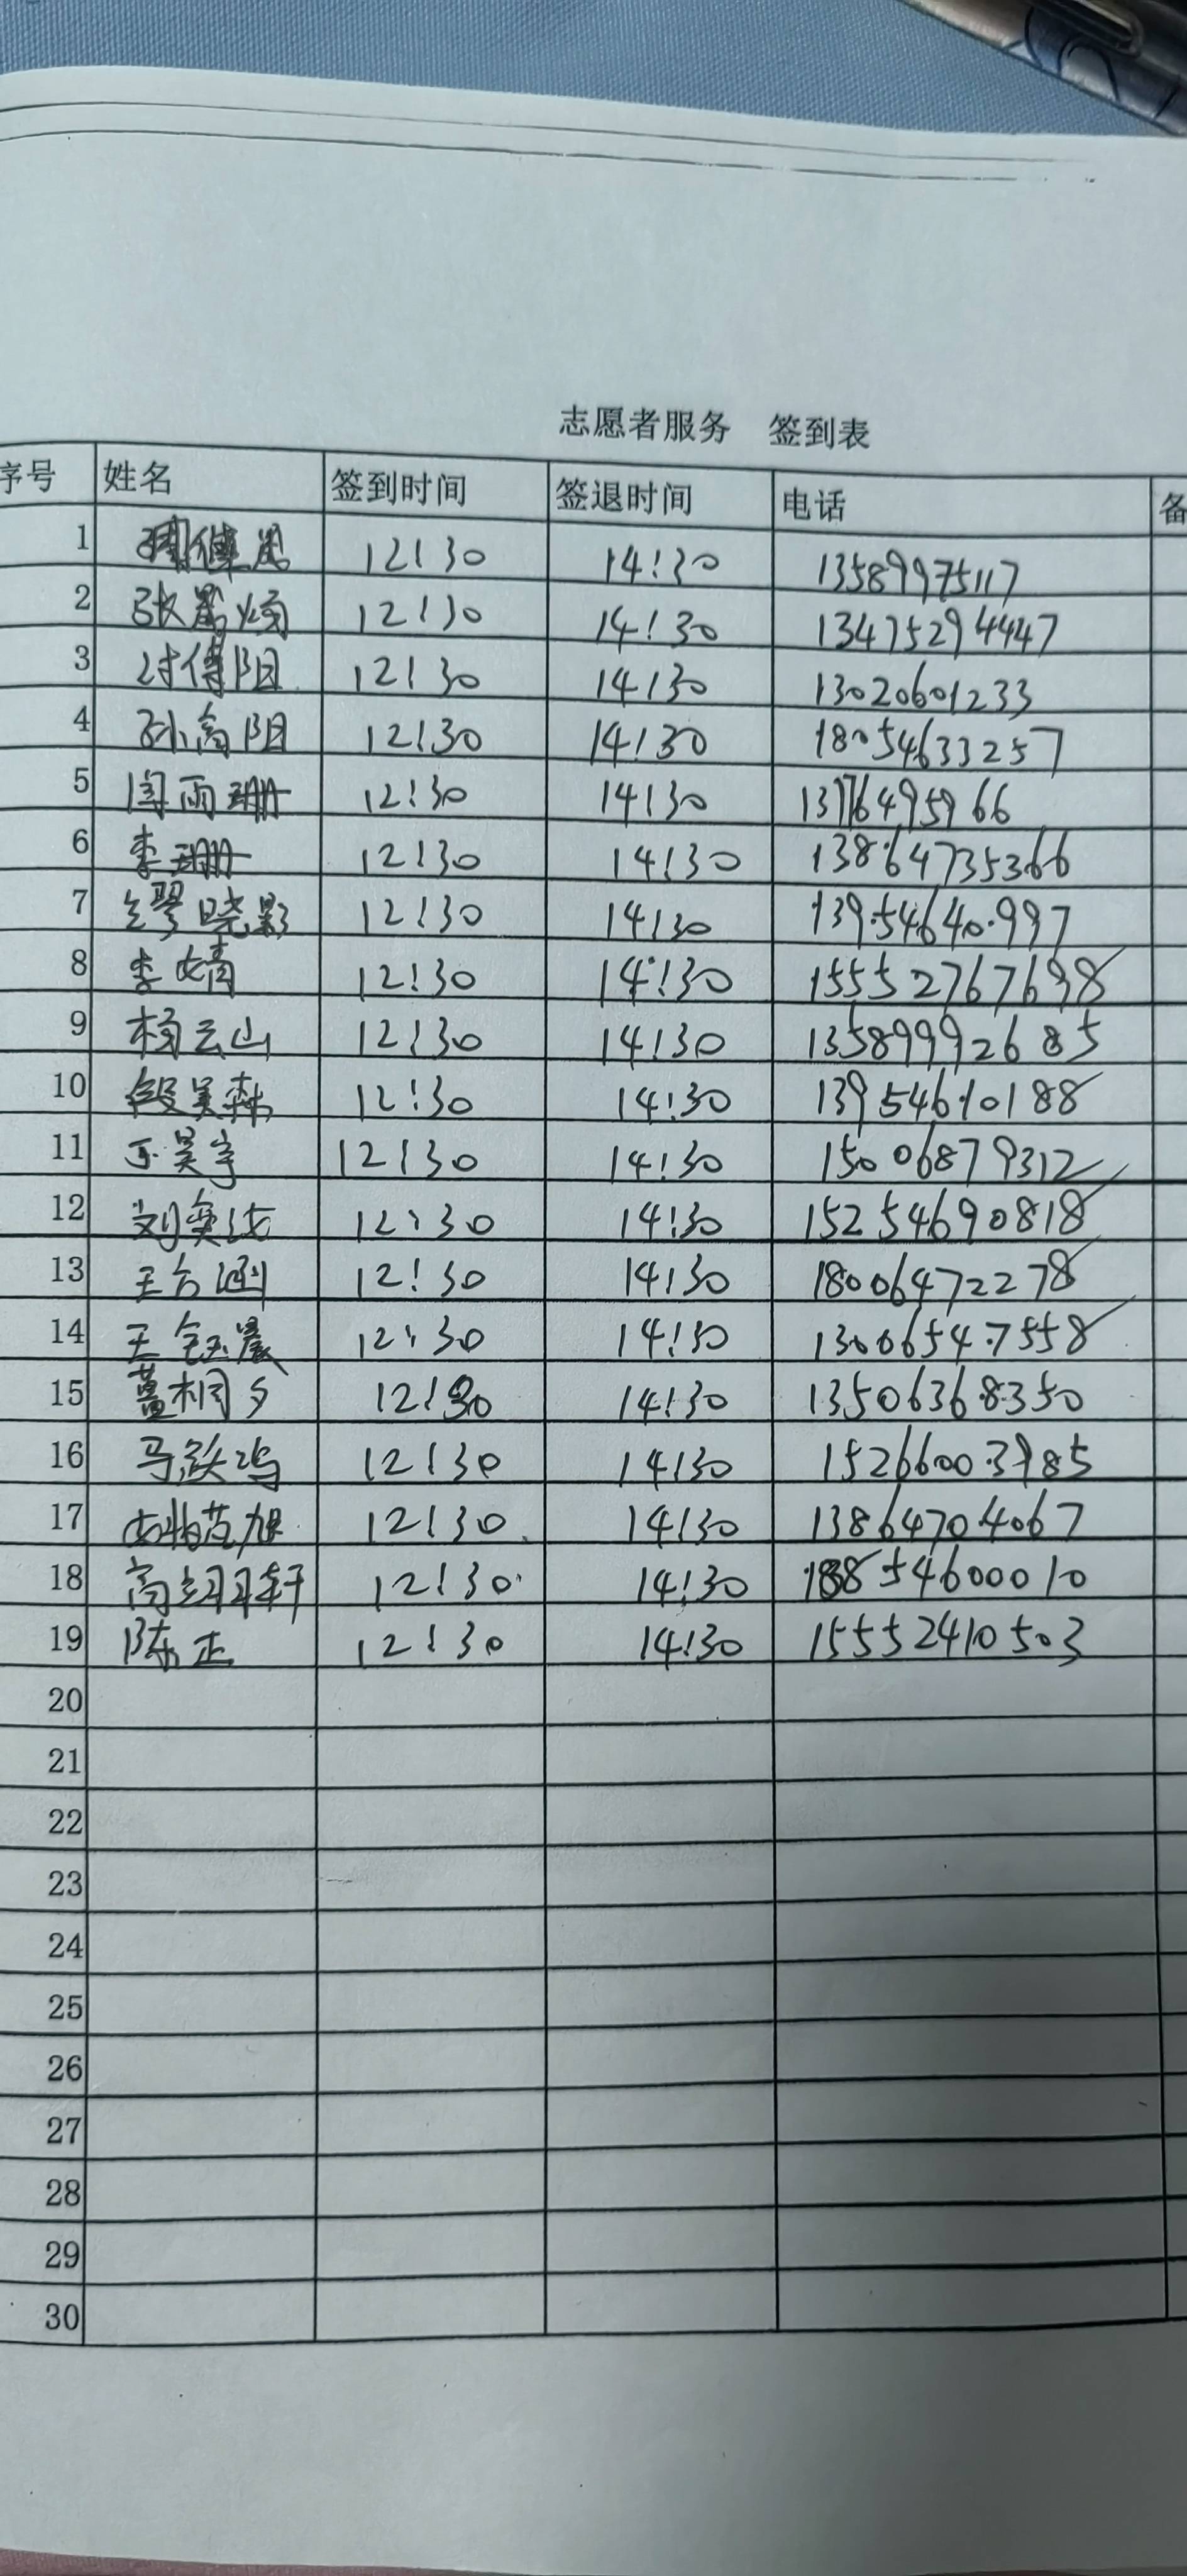 志愿者服务 签到表
序号 姓名 签到时间 签退时间 电话 备
1 12:30 14:30 13589975117
2 张 12:30 14:30 13475294447
3 12:30 14:30 13020601233
4 孙高阳 12:30 14:30 18054633257
5 闫雨珊 12:30 14:30
6 李珊 12:30 14:30 13864735366
7 缪晓影 12:30 14:30 13954640997
8 李婧 12:30 14:30 15552767698
9 杨云山 12:30 14:30 13589992685
10 段昊森 12:30 14:30 13954610188
11 昊宇 12:30 14:30 15006879312
12 刘奕 12:30 14:30 15254690818
13 王 涵 12:30 14:30 18006472278
14 王钰晨 12:30 14:30 13006547558
15 桐夕 12:30 14:30 13506368350
16 马 鸿 12:30 14:30 15266003985
17 12:30 14:30 13864704067
18 高翊轩 12:30 14:30 18854600010
19 陈正 12:30 14:30 15552410503
20
21
22
23
24
25
26
27
28
29
30